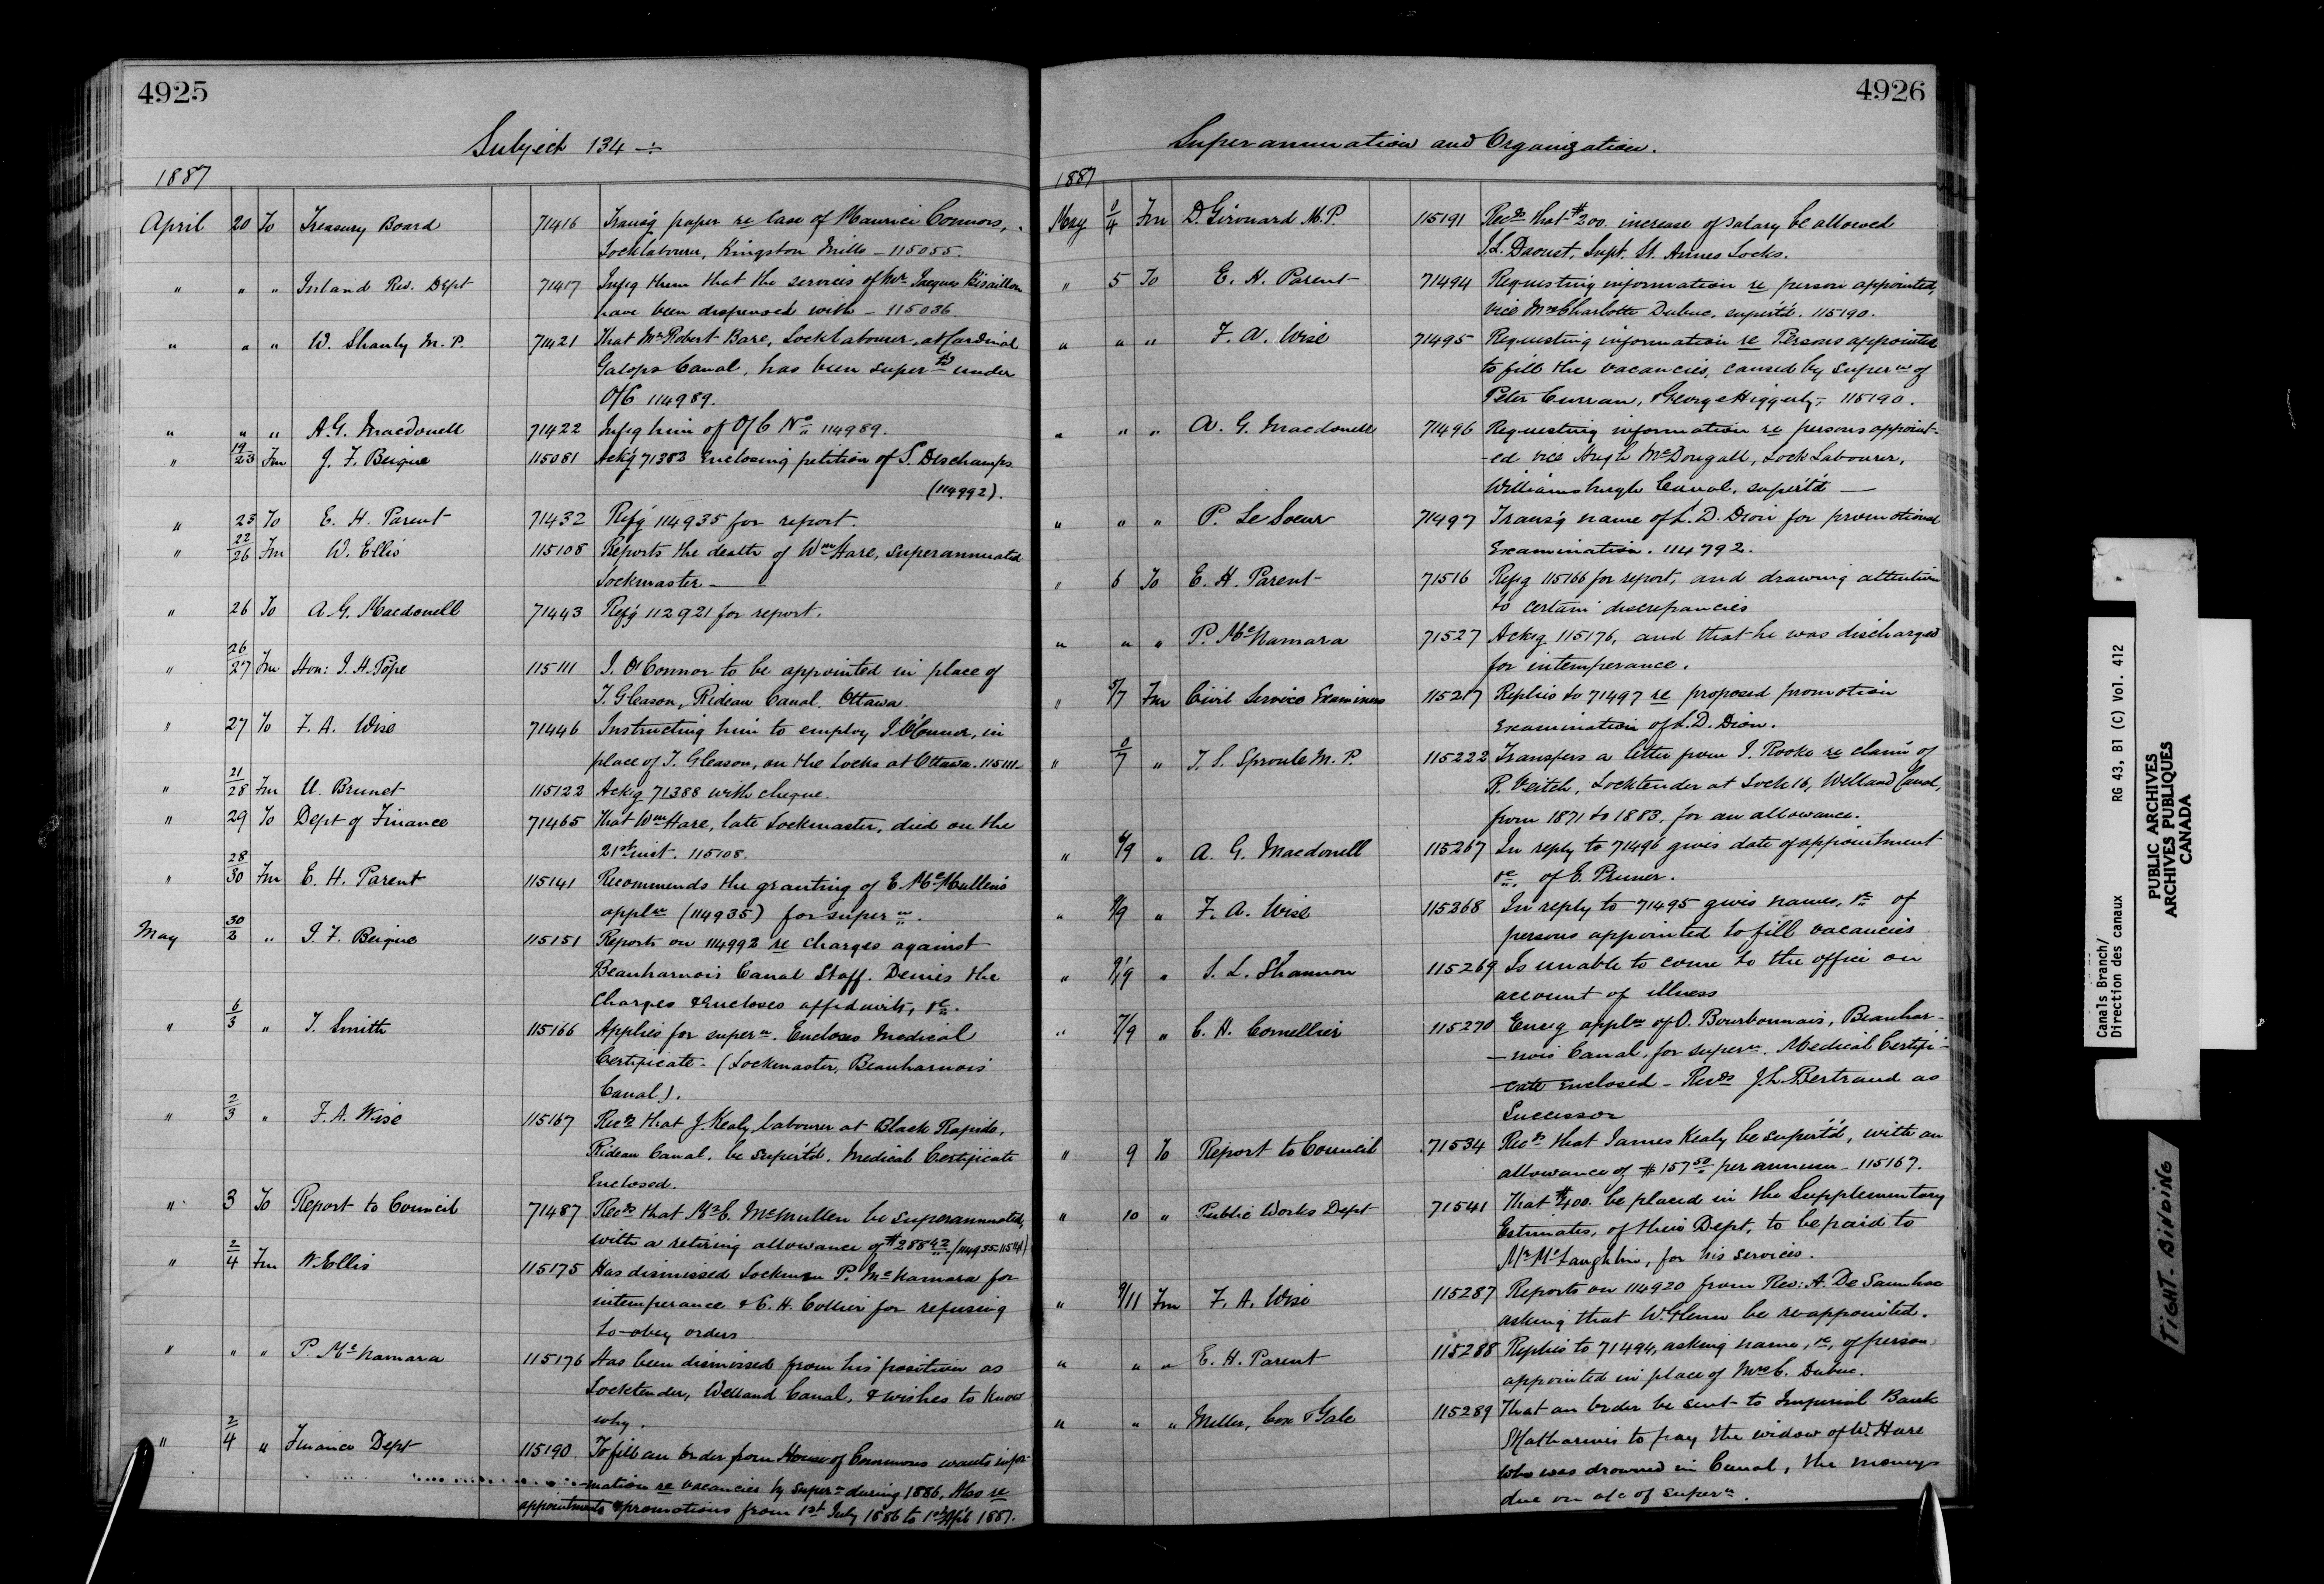 4925
Subject 134 ÷
1887
April 20 To Treasury Board 71416 Transg paper re Case of Maurice Connors,
Locklabourer, Kingston Mills – 115055.
" " " Inland Rev. Dept 71417 Infg them that the services of Mr Jacques Bisaillon
have been dispensed with – 115036
" " " W. Shanly M.P. 71421 That Mr Robert Bare, Locklabourer, at Cardinal
Galops Canal, has been superd under
O/C 114989.
" " " A.G. Macdonell 71422 Infg him of O/C No 114989.
" 19/23 Fm J. F. Beique 115081 Ackg 71383 Enclosing petition of S. Deschamps
(114992).
" 23 To E. H. Parent 71432 Refg 114935 for report.
" 22/26 Fm W. Ellis 115108 Reports the death of Wm Hare, superannuated
Lockmaster –
" 26 To A. G. Macdonell 71443 Refg 112921 for report.
" 26/27 Fm Hon: J. H. Pope 115111 J. O'Connor to be appointed in place of
T. Gleason, Rideau Canal. Ottawa
" 27 To F. A. Wise 71446 Instructing him to employ J. O'Connor, in
place of T. Gleason, on the Locks at Ottawa. 115111
" 21/28 Fm U. Brunet 115122 Ackg 71388 with cheque.
" 29 To Dept of Finance 71465 That Wm Hare, late Lockmaster, died on the
21st inst. 115108.
" 28/30 Fm E. H. Parent 115141 Recommends the granting of E. McMullen's
appln (114935) for supern.
May 30/2 " J. F. Beique 115151 Reports on 114992 re charges against
Beauharnois Canal Staff. Denies the
charges & Encloses affidavits, &c.
" 6/3 " T. Smith 115166 Applies for supern. Encloses Medical
Certificate – (Lockmaster, Beauharnois
Canal).
" 2/3 " F. A. Wise 115167 Recds that J. Kealy, labourer at Black Rapids,
Rideau Canal, be supertd. Medical Certificate
Enclosed.
" 3 To Report to Council 71487 Recds that Mr C. McMullen be superannuated,
with a retiring allowance of $288 42/(114935–115141)
" 2/4 Fm W. Ellis 115175 Has dismissed Lockman P. McNamara for
intemperance & C. H. Collier for refusing
to obey orders
" " " P. McNamara 115176 Has been dismissed from his position as
Locktender, Welland Canal, & wishes to know
why.
" 2/4 " Finance Dept 115190 To fill an order from House of Commons wants infor-
mation re vacancies by supern during 1886. Also re
appointments & promotions from 1st July 1886 to 1st Apl 1887.
4926
Superannuation and Organization.
1887
May 0/4 Fm D. Girouard M.P. 115191 Recds that $200. increase of salary be allowed
J.L. Daoust, Supt. St. Annes Locks.
" 5 To E. H. Parent 71494 Requesting information re person appointed,
vice Mrs Charlotte Dubuc, supertd. 115190.
" " " F. A. Wise 71495 Requesting information re Persons appointed
to fill the vacancies, caused by supern of
Peter Curran, & George Higgerty, 115190.
" " " A. G. Macdonell 71496 Requesting information re persons appoint-
-ed vice Hugh McDougall, Lock Labourer,
Williamsburgh Canal, supertd –
" " " P. Le Soeur 71497 Transg name of L. D. Dion for promotional
Examination. 114792.
" 6 To E. H. Parent 71516 Refg 115166 for report, and drawing attention
to certain discrepancies
" " " P. McNamara 71527 Ackg 115176, and that he was discharged
for intemperance.
" 5/7 Fm Civil Service Examiners 115217 Replies to 71497 re proposed promotion
Examination of L. D. Dion.
" 0/7 " T. S. Sproule M.P. 115222 Transfers a letter from J. Rooke re claim of
R. Veitch, Locktender at Lock 16, Welland Canal,
from 1871 to 1883, for an allowance.
" 6/9 " A. G. Macdonell 115267 In reply to 71496 gives date of appointment
&c, of E. Pruner.
" 9/9 " F. A. Wise 115268 In reply to 71495 gives names, &c of
persons appointed to fill vacancies
" 9/9 " S. L. Shannon 115269 Is unable to come to the office on
account of illness
" 7/9 " C. A. Cornellier 115270 Encg appln of O. Bourbonnais, Beauhar-
-nois Canal, for supern. Medical Certifi-
-cate Enclosed – Recds J. L. Bertrand as
Successor
" 9 To Report to Council 71534 Recds that James Kealy be supertd, with an
allowance of $157 50 per annum – 115167.
" 10 " Public Works Dept 71541 That $400. be placed in the Supplementary
Estimates, of their Dept, to be paid to
Mr McLaughlin, for his services.
" 9/11 Fm F. A. Wise 115287 Reports on 114920 from Rev: A. De Saunhac
asking that W. Glenn be re-appointed.
" " " E. H. Parent 115288 Replies to 71494, asking name, &c, of person
appointed in place of Mrs C. Dubuc.
" " " Miller, Cox & Gale 115289 That an order be sent to Imperial Bank
St Catharines to pay the widow of W. Hare
who was drowned in Canal, the moneys
due on a/c of supern.
Canals Branch/
Direction des canaux
RG 43, B1 (C) Vol. 412
PUBLIC ARCHIVES
ARCHIVES PUBLIQUES
CANADA
TIGHT-BINDING